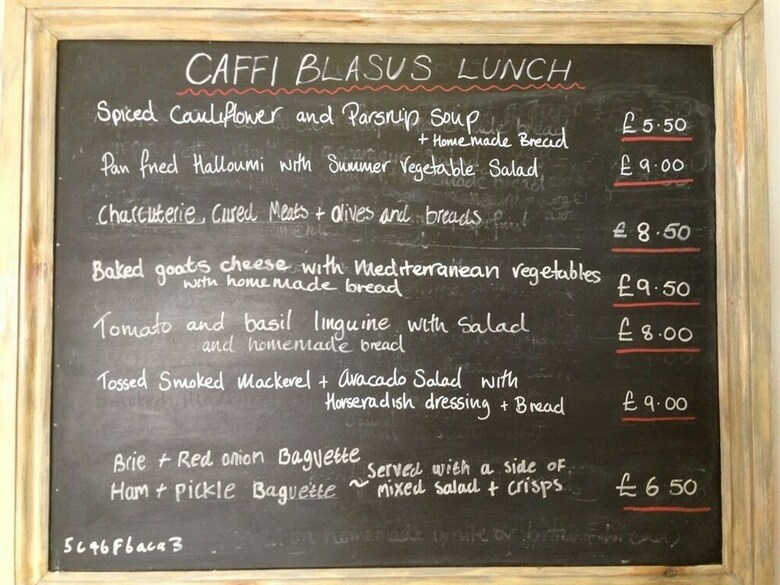 CAFFI BLASUS LUNCH
Spiced Cauliflower and Parsnip Soup
+ Homemade Bread £5.50
Pan fried Halloumi with Summer Vegetable Salad £9.00
Charcuterie, Cured Meats + olives and breads £8.50
Baked goats cheese with Mediterranean vegetables
with homemade bread £9.50
Tomato and basil linguine with Salad £8.00
and homemade bread
Tossed Smoked Mackerel + Avacado Salad with
Horseradish dressing + Bread £9.00
Brie + Red onion Baguette
Served with a side of
Ham + pickle Baguette ~ mixed salad + crisps £6.50
5c46F6aca3